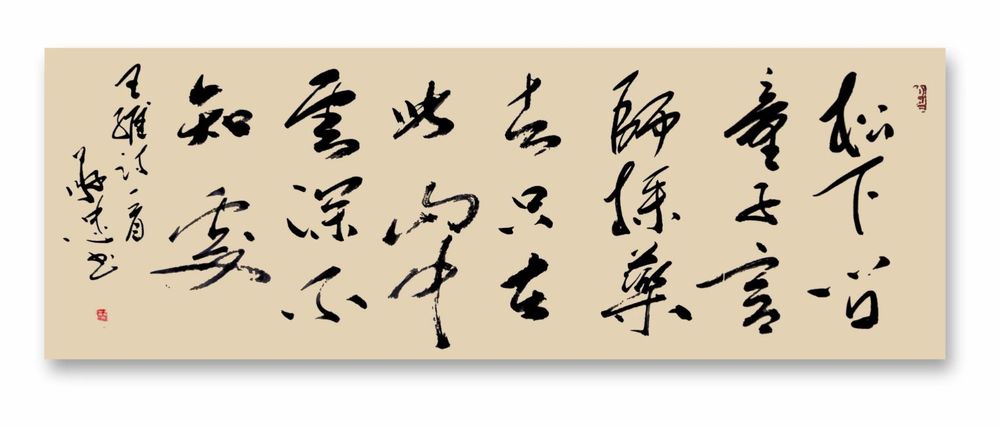 松下問
童子言
師採藥
去只在
此山中
雲深不
知處
王維詩一首
書